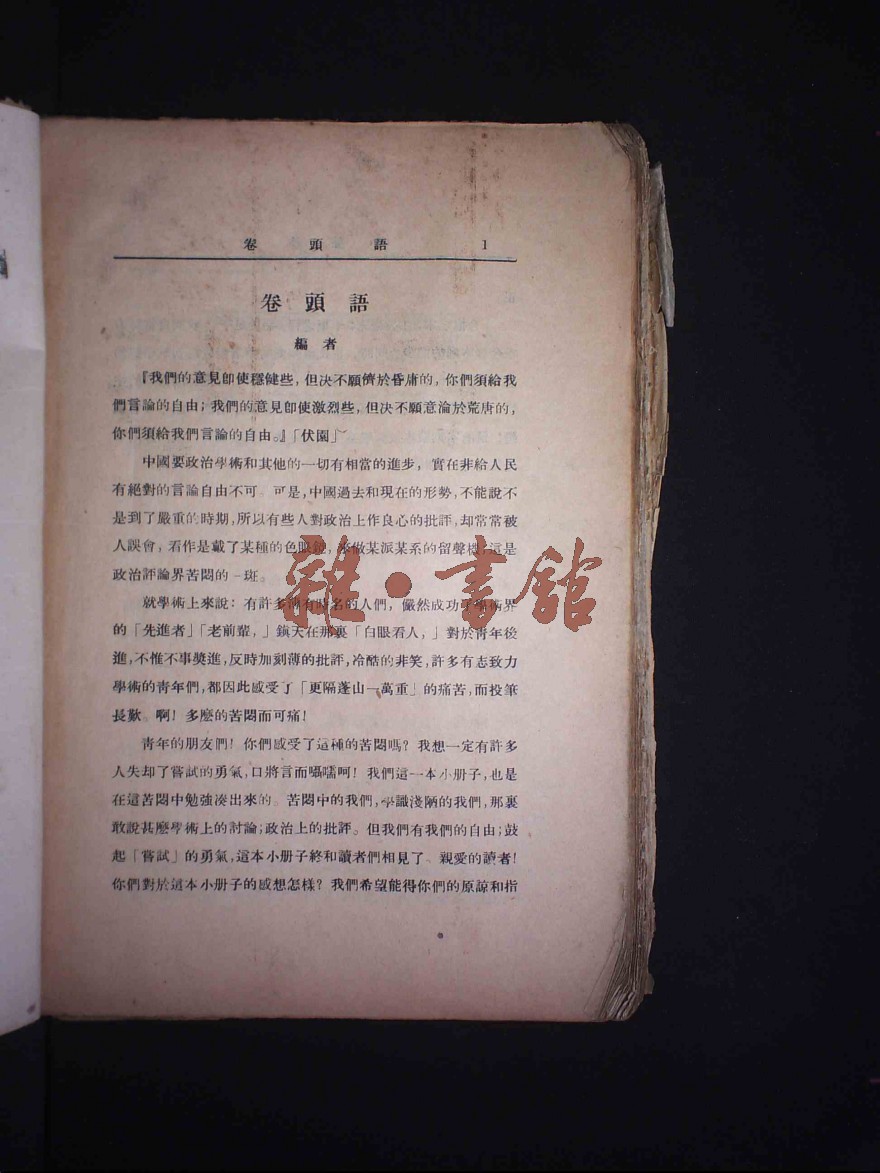 卷頭語 1
卷頭語
編者
『我們的意見卽使穩健些，但決不願儕於昏庸的，你們須給我
們言論的自由；我們的意見卽使激烈些，但決不願意淪於荒唐的，
你們須給我們言論的自由。』「伏園」
中國要政治學術和其他的一切有相當的進步，實在非給人民
有絕對的言論自由不可。可是，中國過去和現在的形勢，不能說不
是到了嚴重的時期，所以有些人對政治上作良心的批評，却常常被
人誤會，看作是戴了某種的色眼鏡，來做某派某系的留聲機；這是
政治評論界苦悶的一斑。
就學術上來說：有許多薄有時名的人們，儼然成功了學術界
的「先進者」「老前輩，」鎮天在那裏「白眼看人，」對於靑年後
進，不惟不事奬進，反時加刻薄的批評，冷酷的非笑，許多有志致力
學術的靑年們，都因此感受了「更隔蓬山一萬重」的痛苦，而投筆
長歎。啊！多麼的苦悶而可痛！
靑年的朋友們！你們感受了這種的苦悶嗎？我想一定有許多
人失却了嘗試的勇氣，口將言而囁嚅呵！我們這一本小册子，也是
在這苦悶中勉強湊出來的。苦悶中的我們，學識淺陋的我們，那裏
敢說甚麼學術上的討論；政治上的批評。但我們有我們的自由；鼓
起「嘗試」的勇氣，這本小册子終和讀者們相見了。親愛的讀者！
你們對於這本小册子的感想怎樣？我們希望能得你們的原諒和指
雜·書館